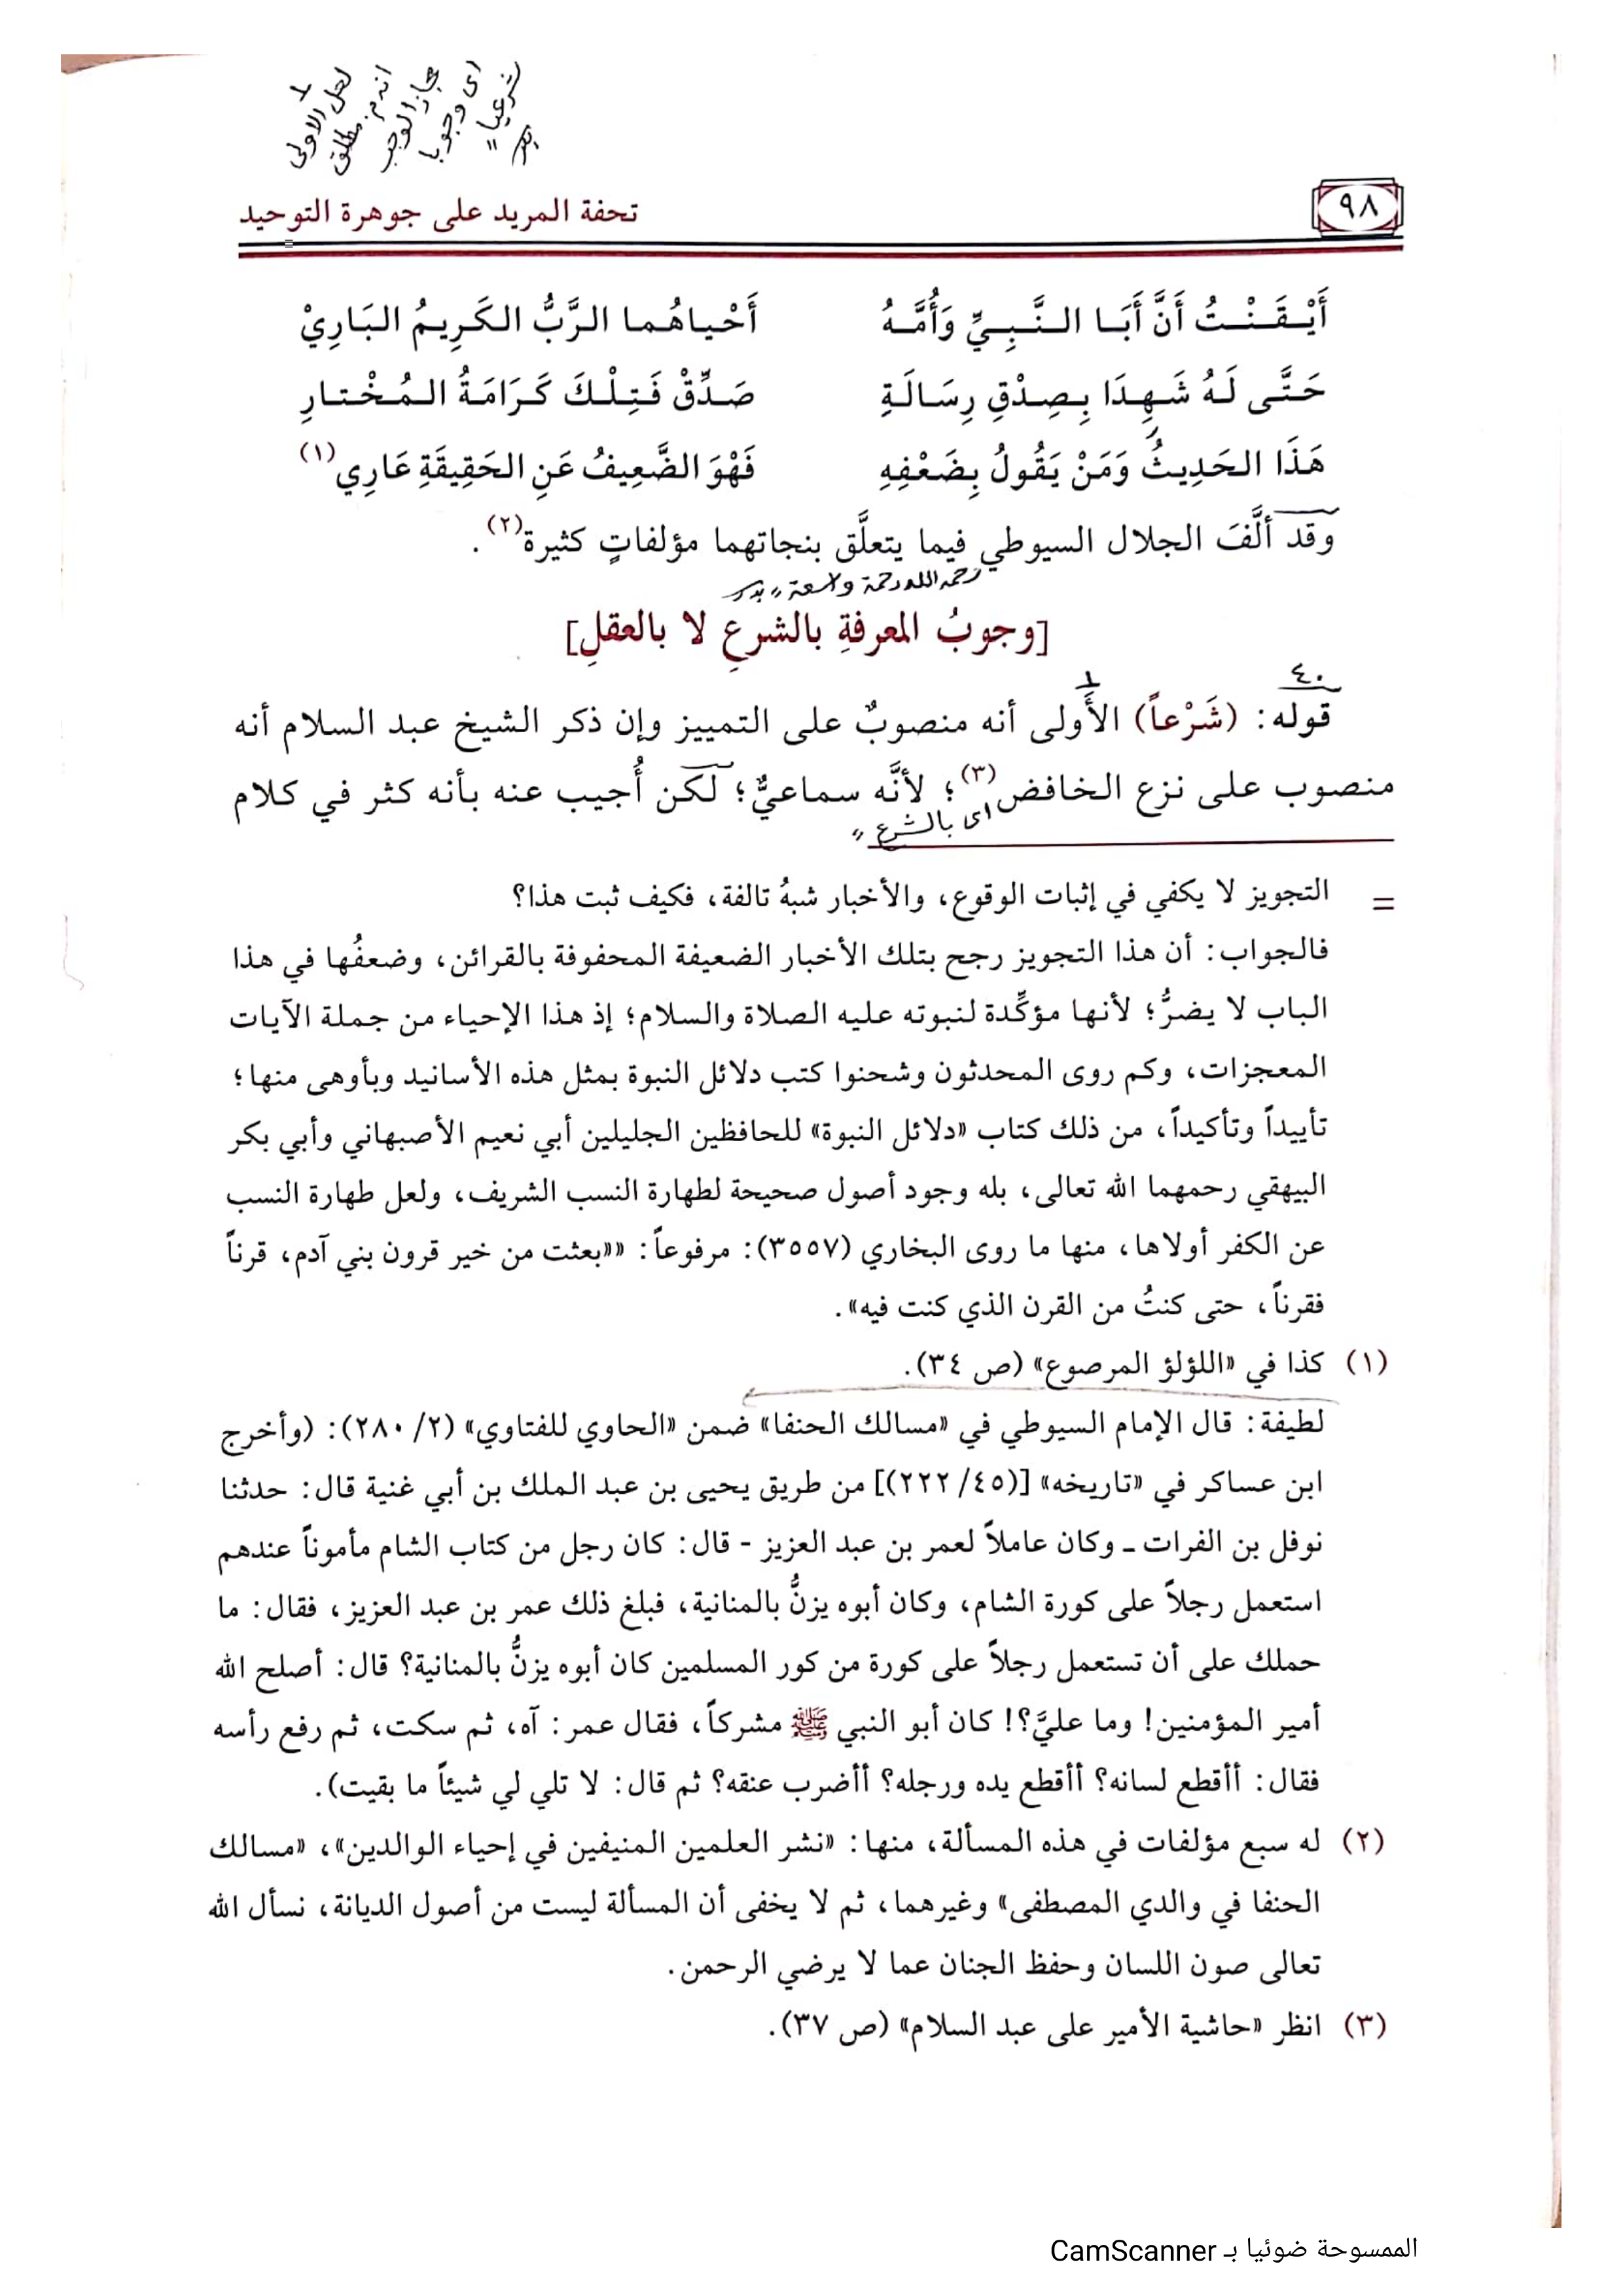 لعل الاولى
اى وجوبا
شرعيا
٩٨
تحفة المريد على جوهرة التوحيد
أَيْقَنْتُ أَنَّ أَبَا النَّبِيِّ وَأُمَّهُ أَحْياهُما الرَّبُّ الكَرِيمُ البَارِيْ
حَتَّى لَهُ شَهِدَا بِصِدْقِ رِسَالَةِ صَدِّقْ فَتِلْكَ كَرَامَةُ المُخْتارِ
هَذَا الحَدِيثُ وَمَنْ يَقُولُ بِضَعْفِهِ فَهْوَ الضَّعِيفُ عَنِ الحَقِيقَةِ عَارِي(١)
وَقد ألَّفَ الجلال السيوطي فيما يتعلَّق بنجاتهما مؤلفاتٍ كثيرة(٢).
رحمه الله رحمة واسعة
[وجوبُ المعرفةِ بالشرعِ لا بالعقلِ]
٤٠
قوله: (شَرْعاً) الأَولى أنه منصوبٌ على التمييز وإن ذكر الشيخ عبد السلام أنه
منصوب على نزع الخافض(٣)؛ لأنَّه سماعيٌّ؛ لكن أُجيب عنه بأنه كثر في كلام
اى بالشرع
= التجويز لا يكفي في إثبات الوقوع، والأخبار شبهُ تالفة، فكيف ثبت هذا؟
فالجواب: أن هذا التجويز رجح بتلك الأخبار الضعيفة المحفوفة بالقرائن، وضعفُها في هذا
الباب لا يضرُّ؛ لأنها مؤكِّدة لنبوته عليه الصلاة والسلام؛ إذ هذا الإحياء من جملة الآيات
المعجزات، وكم روى المحدثون وشحنوا كتب دلائل النبوة بمثل هذه الأسانيد وبأوهى منها؛
تأييداً وتأكيداً، من ذلك كتاب «دلائل النبوة» للحافظين الجليلين أبي نعيم الأصبهاني وأبي بكر
البيهقي رحمهما الله تعالى، بله وجود أصول صحيحة لطهارة النسب الشريف، ولعل طهارة النسب
عن الكفر أولاها، منها ما روى البخاري (٣٥٥٧): مرفوعاً: ««بعثت من خير قرون بني آدم، قرناً
فقرناً، حتى كنتُ من القرن الذي كنت فيه».
(١) كذا في «اللؤلؤ المرصوع» (ص ٣٤).
لطيفة: قال الإمام السيوطي في «مسالك الحنفا» ضمن «الحاوي للفتاوي» (٢/ ٢٨٠): (وأخرج
ابن عساكر في «تاريخه» [(٤٥/ ٢٢٢)] من طريق يحيى بن عبد الملك بن أبي غنية قال: حدثنا
نوفل بن الفرات ـ وكان عاملاً لعمر بن عبد العزيز - قال: كان رجل من كتاب الشام مأموناً عندهم
استعمل رجلاً على كورة الشام، وكان أبوه يزنُّ بالمنانية، فبلغ ذلك عمر بن عبد العزيز، فقال: ما
حملك على أن تستعمل رجلاً على كورة من كور المسلمين كان أبوه يزنُّ بالمنانية؟ قال: أصلح الله
أمير المؤمنين! وما عليَّ؟! كان أبو النبي ﷺ مشركاً، فقال عمر: آه، ثم سكت، ثم رفع رأسه
فقال: أأقطع لسانه؟ أأقطع يده ورجله؟ أأضرب عنقه؟ ثم قال: لا تلي لي شيئاً ما بقيت).
(٢) له سبع مؤلفات في هذه المسألة، منها: «نشر العلمين المنيفين في إحياء الوالدين»، «مسالك
الحنفا في والدي المصطفى» وغيرهما، ثم لا يخفى أن المسألة ليست من أصول الديانة، نسأل الله
تعالى صون اللسان وحفظ الجنان عما لا يرضي الرحمن.
(٣) انظر «حاشية الأمير على عبد السلام» (ص ٣٧).
الممسوحة ضوئيا بـ CamScanner